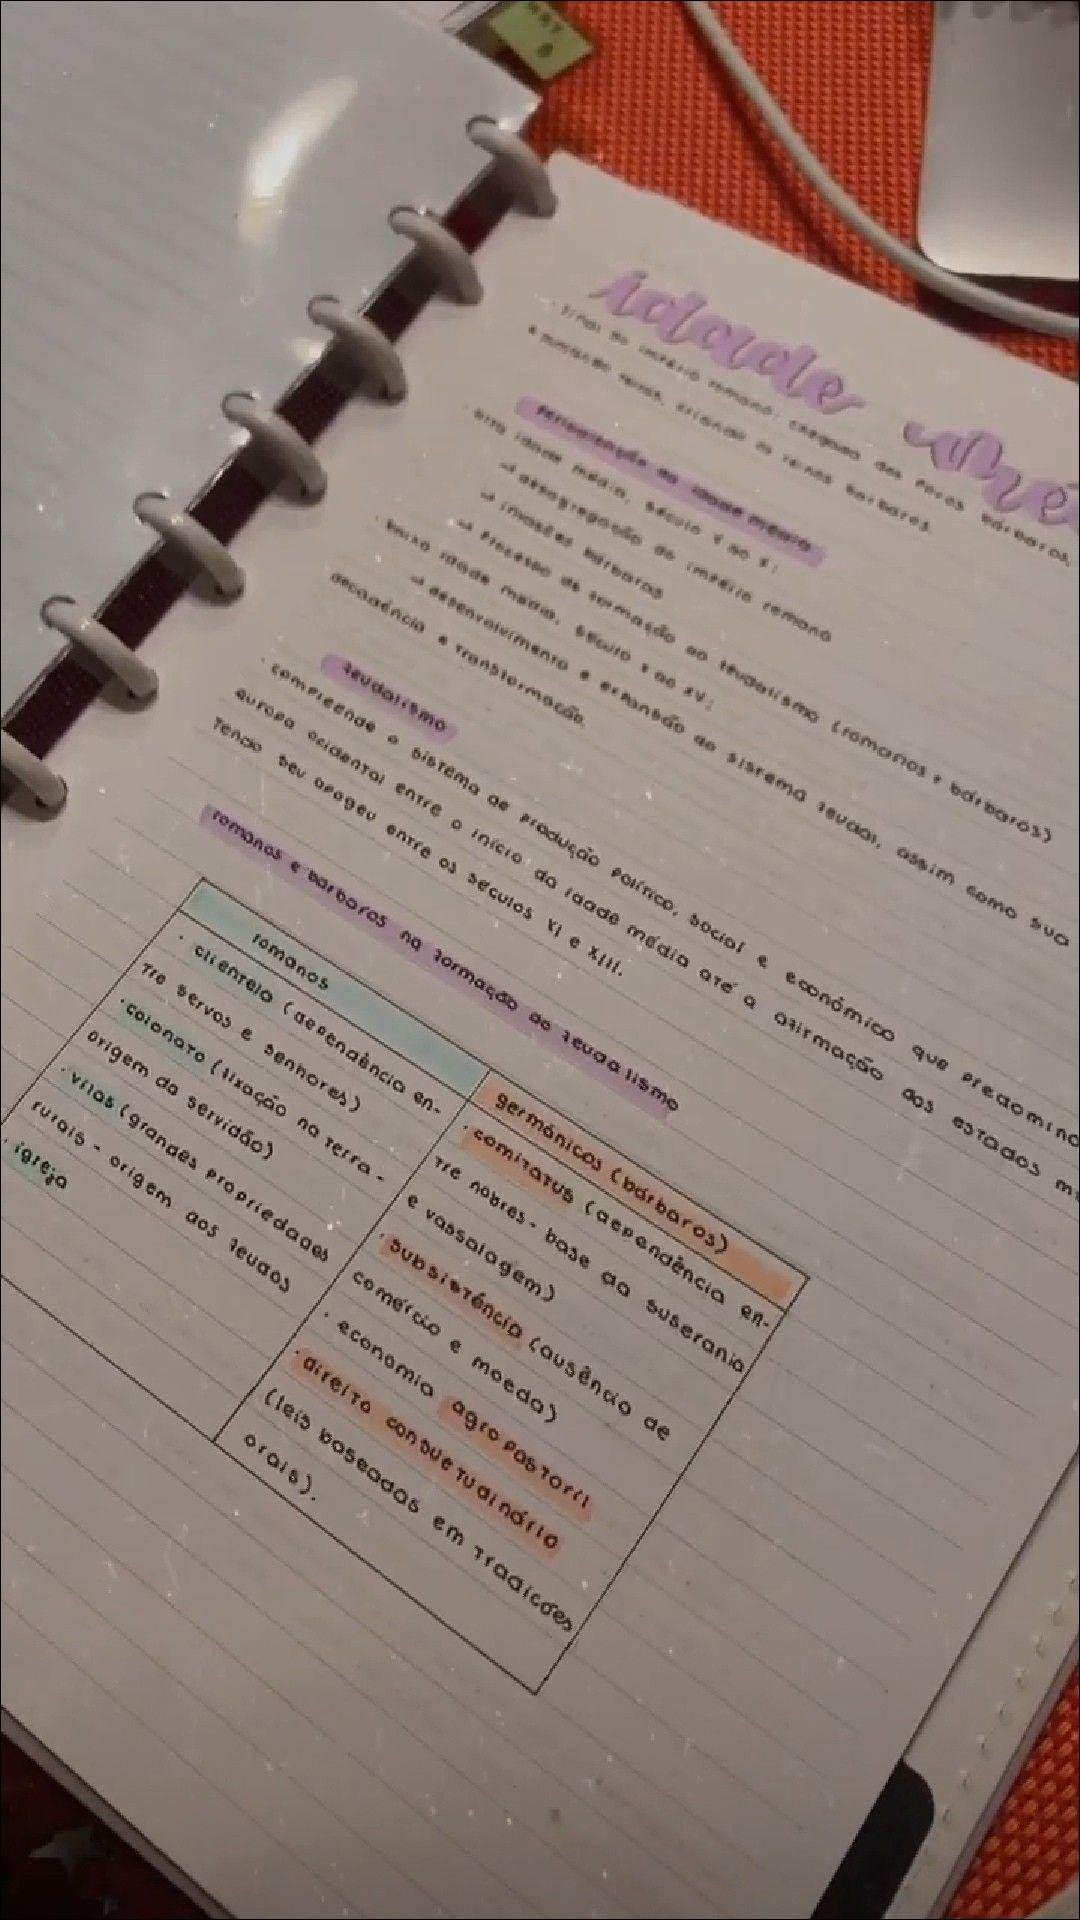 idade Mé
· final do império romano; chegada dos povos bárbaros,
criando os reinos bárbaros.
periodização da idade média
· alta idade média, século V ao X:
→ desagregação do império romano
→ invasões bárbaras
→ processo de formação do feudalismo (romanos + bárbaros)
· baixa idade média, século X ao XV:
→ desenvolvimento e expansão do sistema feudal, assim como sua
decadência e transformação.
feudalismo
· compreende o sistema de produção político, social e econômico que predomino
europa ocidental entre o início da idade média até a afirmação dos estados
tendo seu apogeu entre os séculos XI e XIII.
romanos e bárbaros na formação do feudalismo
romanos
· clientela (dependência en-
tre servos e senhores)
· colonato (fixação na terra -
origem da servidão)
· vilas (grandes propriedades
rurais - origem aos feudos
· igreja
germânicos (bárbaros)
· comitatus (dependência en-
tre nobres - base da suserania
e vassalagem)
· subsistência (ausência de
comércio e moeda)
· economia agropastoril
· direito consuetudinário
(leis baseadas em tradições
orais).